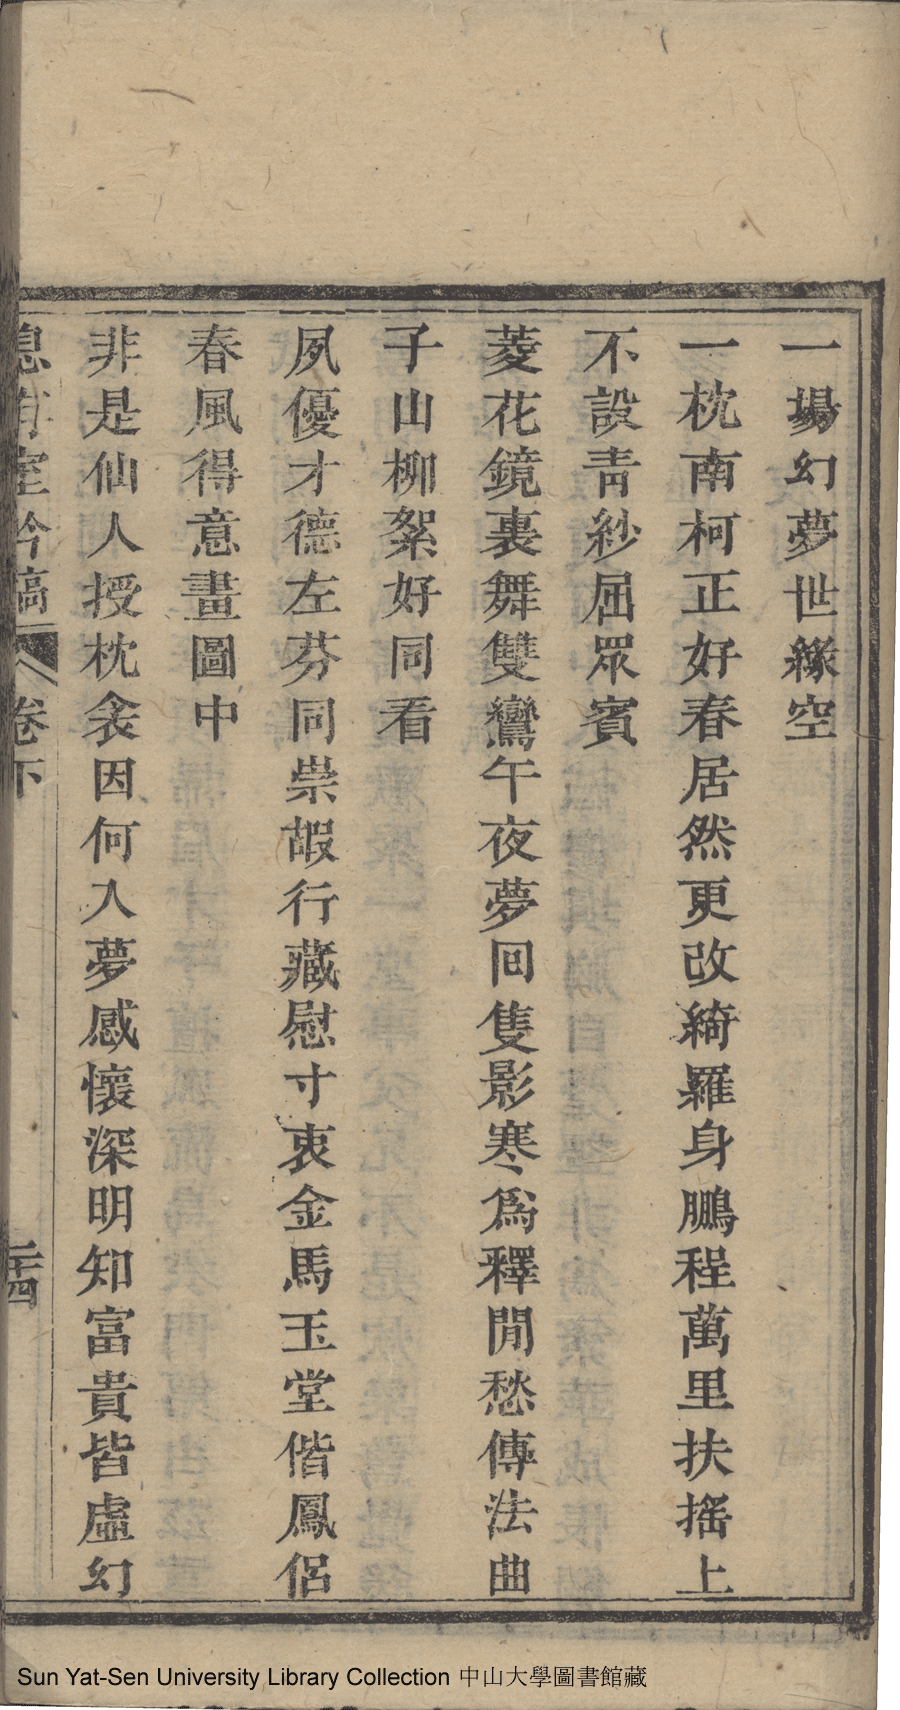 一場幻夢世緣空
一枕南柯正好春居然更改綺羅身鵬程萬里扶搖上
不設青紗屈眾賓
菱花鏡裏舞雙鸞午夜夢回隻影寒爲釋閒愁傳法曲
子山柳絮好同看
夙優才德左芬同祟嘏行藏慰寸衷金馬玉堂偕鳳侶
春風得意畫圖中
非是仙人授枕衾因何人夢感懷深明知富貴皆虛幻
卷下
Sun Yat-Sen University Library Collection 中山大學圖書館藏